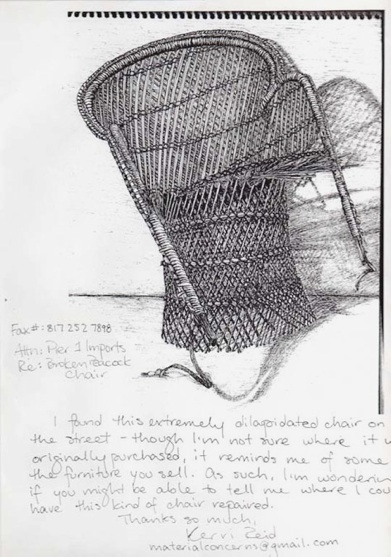 Fax#: 817 252 7898
Attn: Pier 1 Imports
Re: Broken Peacock
Chair
I found this extremely dilapidated chair on
the street - though I'm not sure where it w
originally purchased, it reminds me of some
the furniture you sell. As such, I'm wonderin
if you might be able to tell me where I cou
have this kind of chair repaired.
Thanks so much,
Kerri Reid
materialconcerns@gmail.com